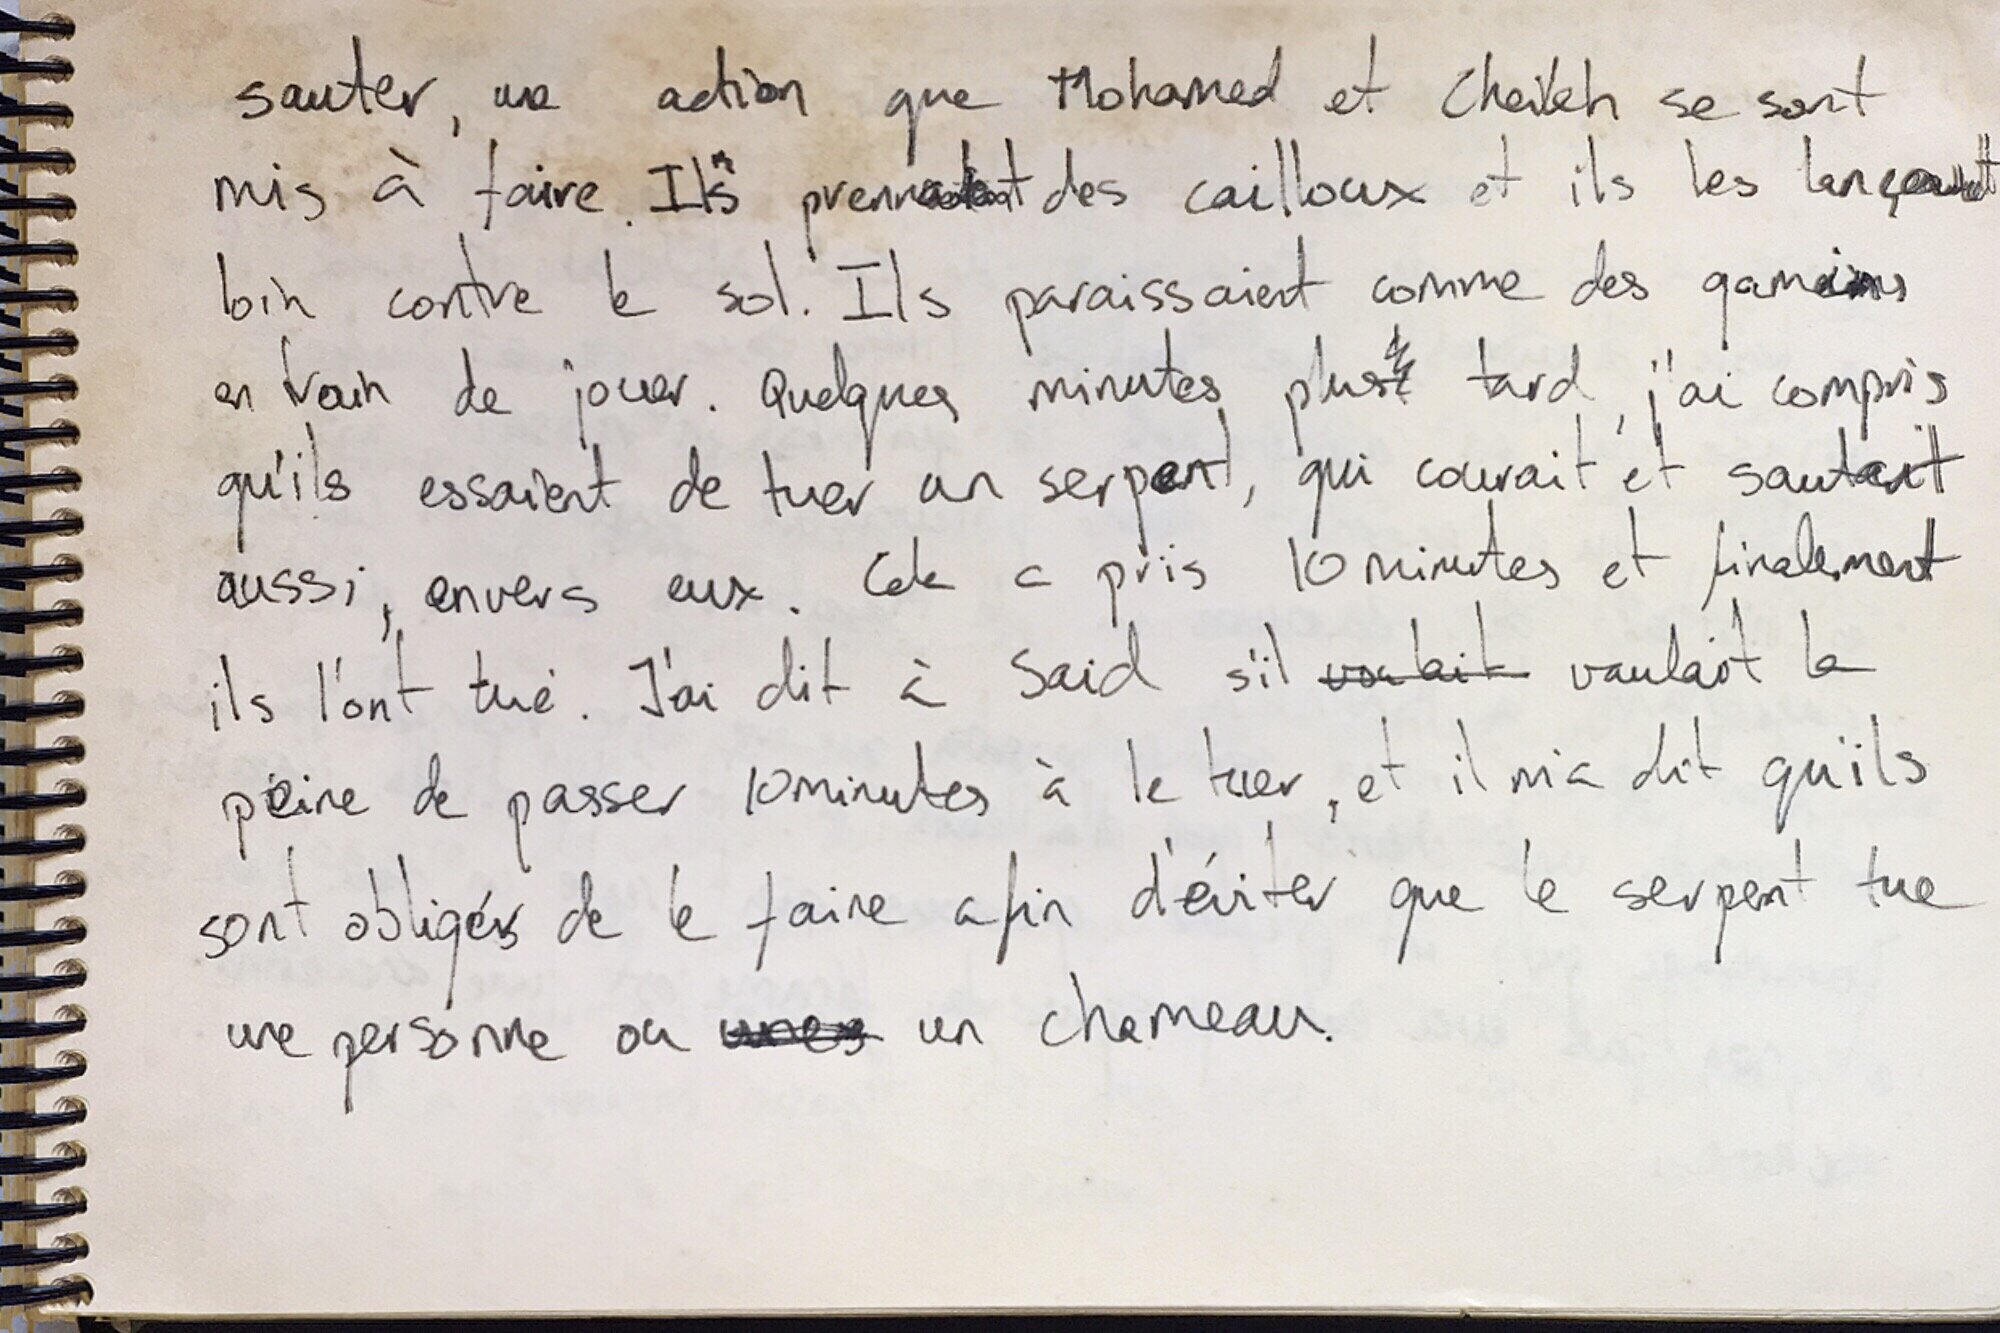 sauter, une action que Mohamed et Cheikh se sont
mis à faire. Ils prennaient des cailloux et ils les lançaient
loin contre le sol. Ils paraissaient comme des gamins
en train de jouer. Quelques minutes plus tard, j'ai compris
qu'ils essaient de tuer un serpent, qui courait et sautait
aussi, envers eux. Cela a pris 10 minutes et finalement
ils l'ont tué. J'ai dit à Said s'il vaulait la
peine de passer 10 minutes à le tuer, et il m'a dit qu'ils
sont obligés de le faire afin d'éviter que le serpent tue
une personne ou un chameau.